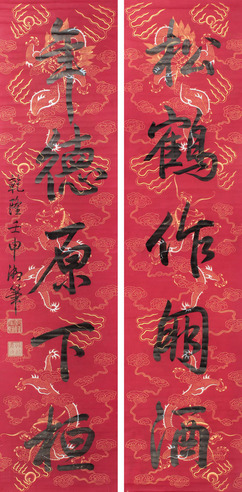 松鶴作酒
德原下桓
乾隆壬申御筆